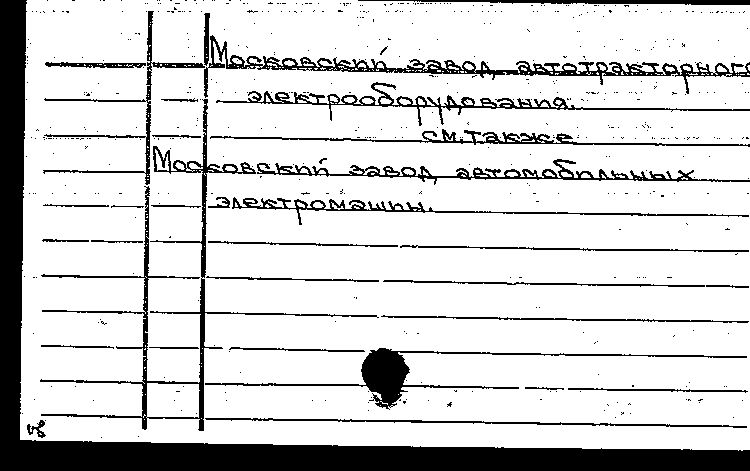 Московский завод автотракторного
электрооборудования.
см. также
Московский завод автомобильных
электромашин.